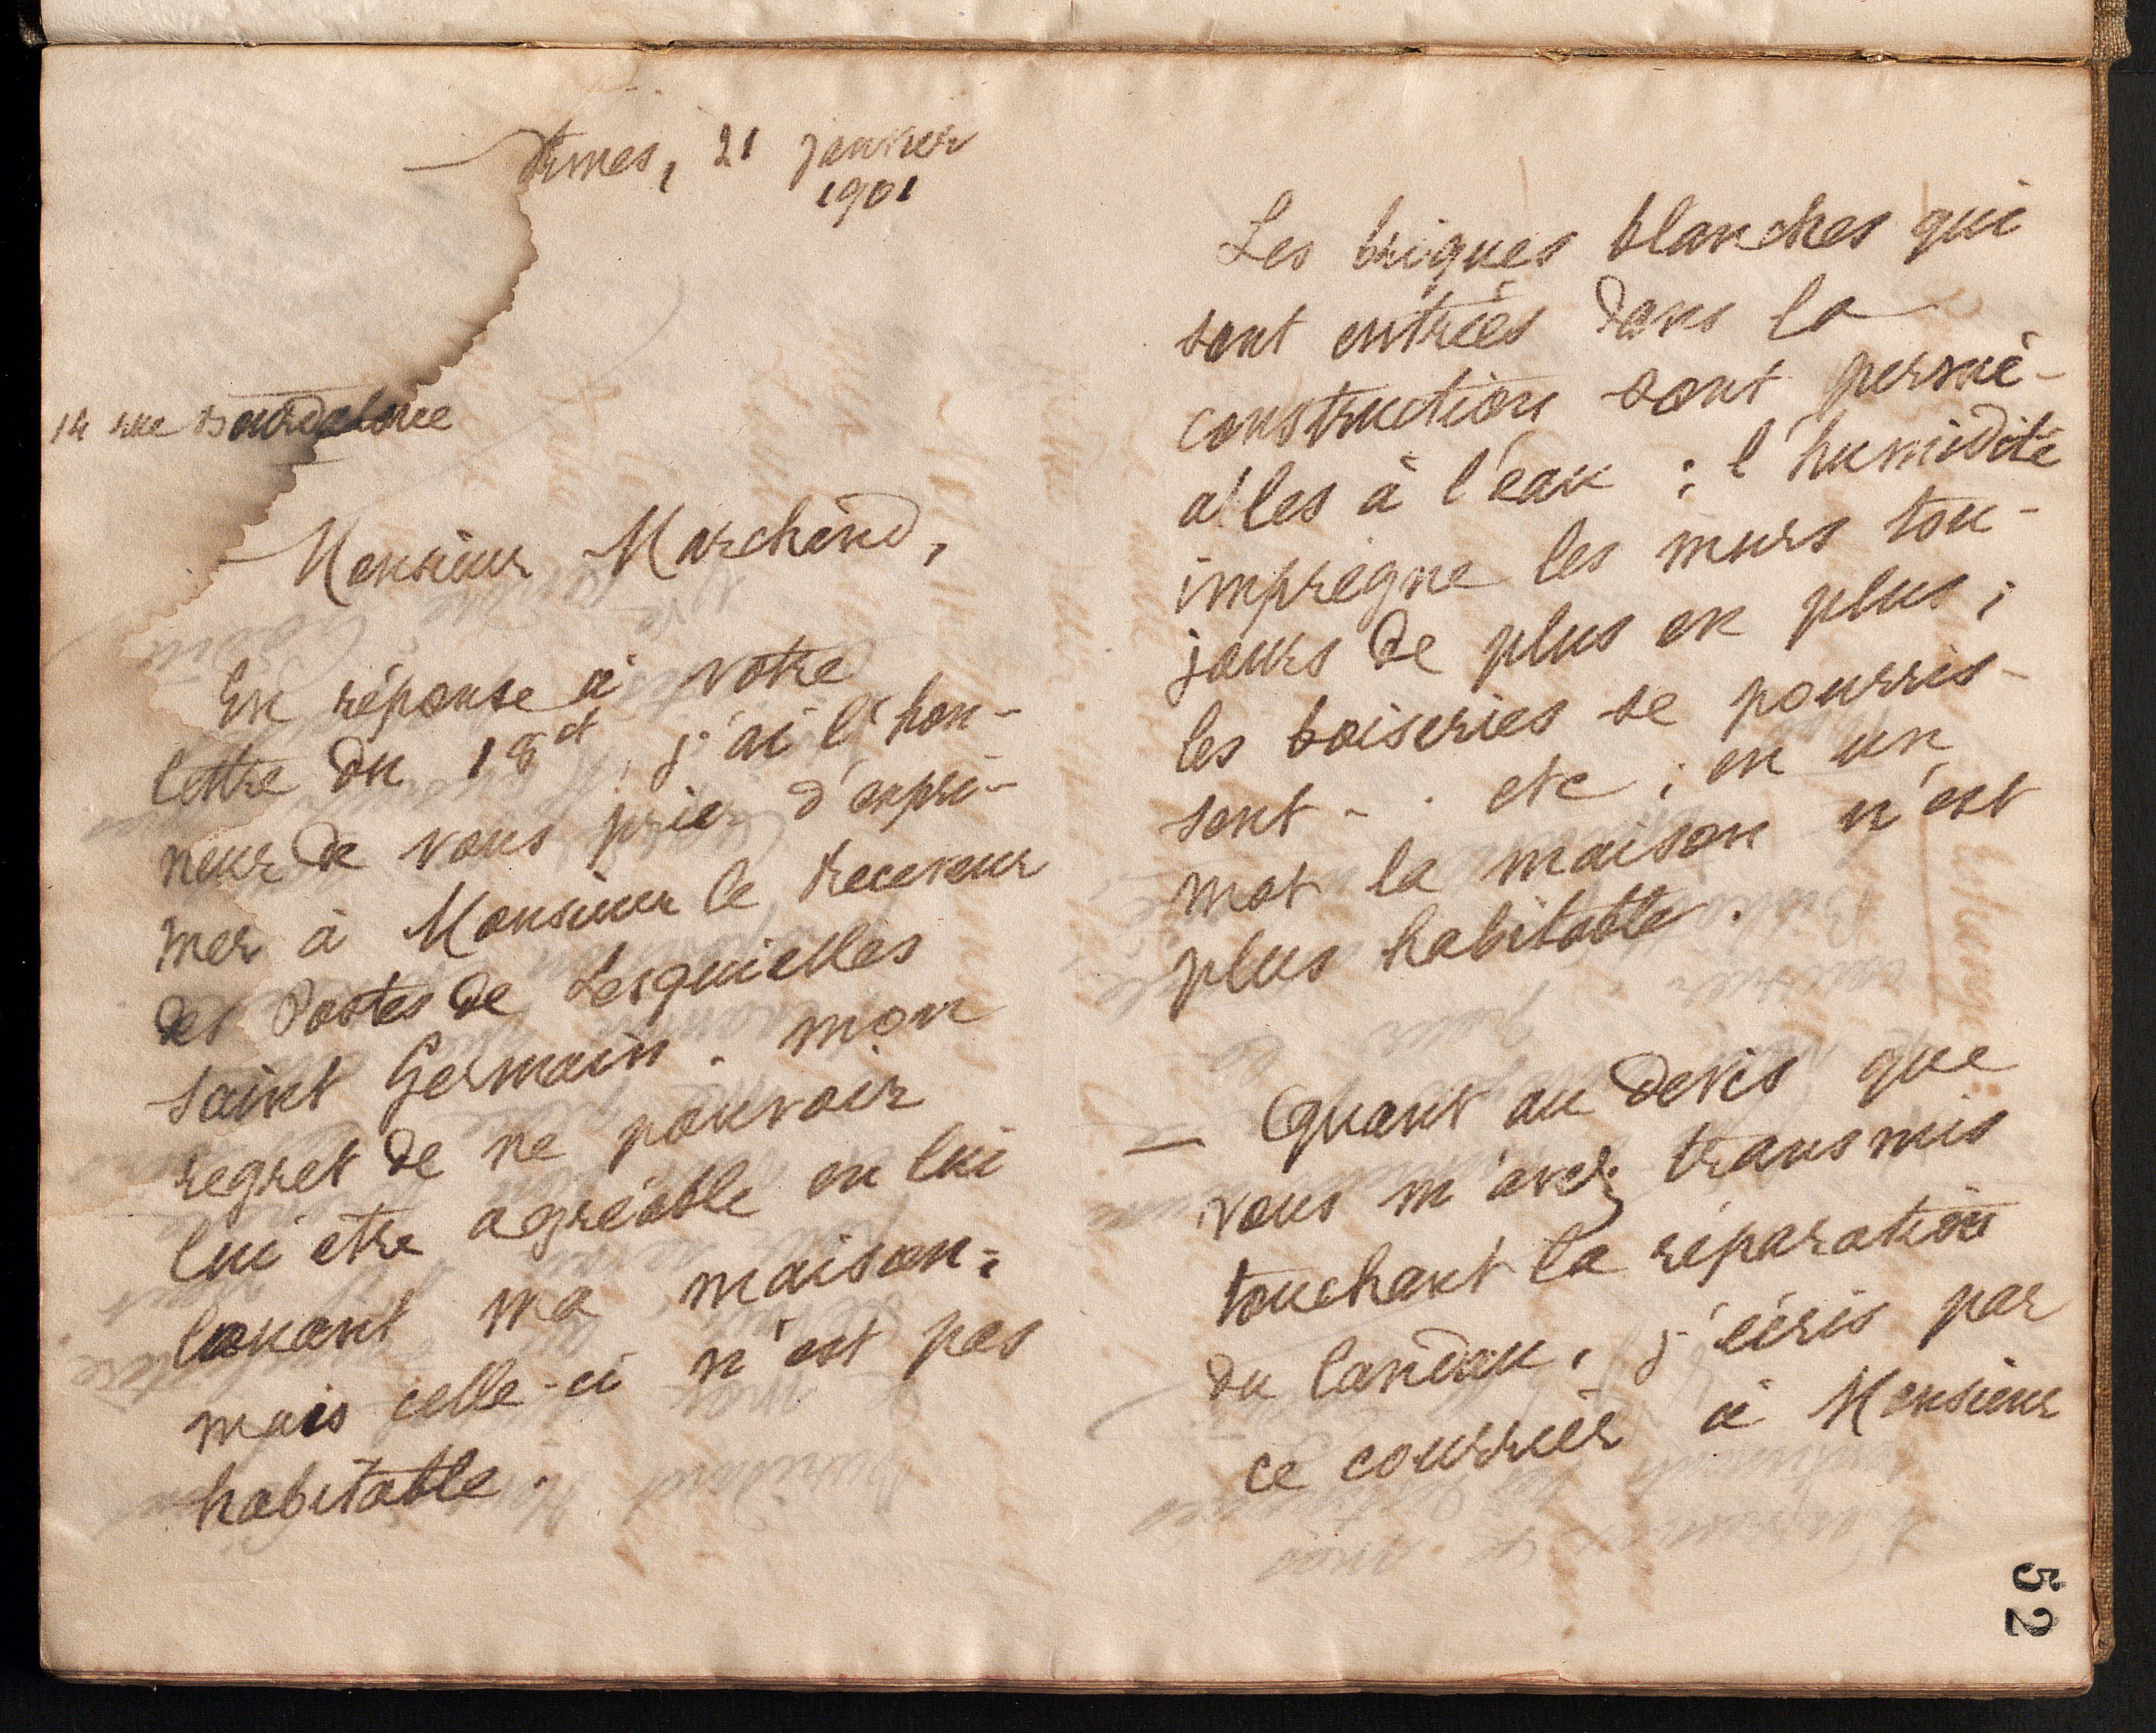 Nîmes, 21 janvier
1901
14 rue Bourdaloue
Monsieur Marchand,
En réponse à votre
lettre du 18 ct, j'ai l'hon-
neur de vous prier d'expri-
mer à Monsieur le Receveur
des Postes de Lesquielles
Saint Germain. mon
regret de ne pouvoir
lui être agréable en lui
louant ma maison;
mais celle-ci n'est pas
habitable.
Les briques blanches qui
sont entrées dans la
construction sont permé-
ables à l'eau ; l'humidité
imprègne les murs tou-
jours de plus en plus ;
les boiseries se pourris-
sent - . etc ; en un
mot la maison n'est
plus habitable.
— Quant au devis que
vous m'avez transmis
touchant la réparation
du landau, j'écris par
ce courrier à Monsieur
52